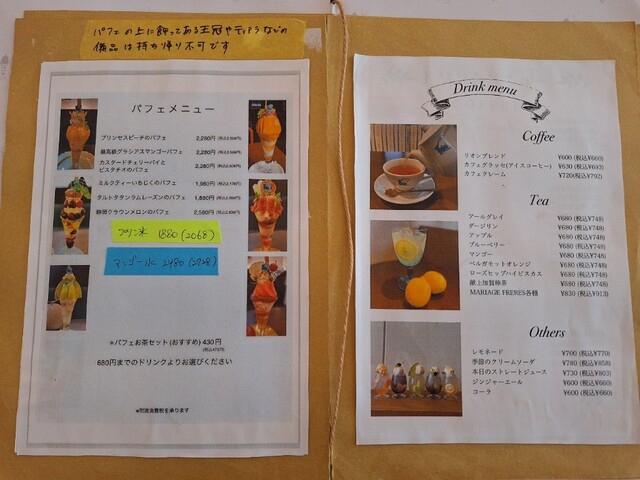 パフェの上に飾ってある王冠やティアラなどの
備品は持ち帰り不可です
パフェメニュー
プリンセスピーチのパフェ 2,280円
最高級グラシアスマンゴーパフェ 2,280円
カスタードチェリーパイと
ピスタチオのパフェ 2,280円
ミルクティーいちじくのパフェ 1,980円
タルトタタンラムレーズンのパフェ 1,880円
静岡クラウンメロンのパフェ 2,580円
プリン氷 1880(2068)
マンゴー氷 2480(2728)
*パフェお茶セット(おすすめ)430円
680円までのドリンクよりお選びください
*別途消費税を承ります
Drink menu
Coffee
リオンブレンド ¥600(税込¥660)
カフェグラッセ(アイスコーヒー) ¥630(税込¥693)
カフェクレーム ¥720(税込¥792)
Tea
アールグレイ ¥680(税込¥748)
ダージリン ¥680(税込¥748)
アップル ¥680(税込¥748)
ブルーベリー ¥680(税込¥748)
マンゴー ¥680(税込¥748)
ベルガモットオレンジ ¥680(税込¥748)
ローズヒップハイビスカス ¥680(税込¥748)
献上加賀棒茶 ¥680(税込¥748)
MARIAGE FRERES各種 ¥830(税込¥913)
Others
レモネード ¥700(税込¥770)
季節のクリームソーダ ¥780(税込¥858)
本日のストレートジュース ¥730(税込¥803)
ジンジャーエール ¥600(税込¥660)
コーラ ¥600(税込¥660)